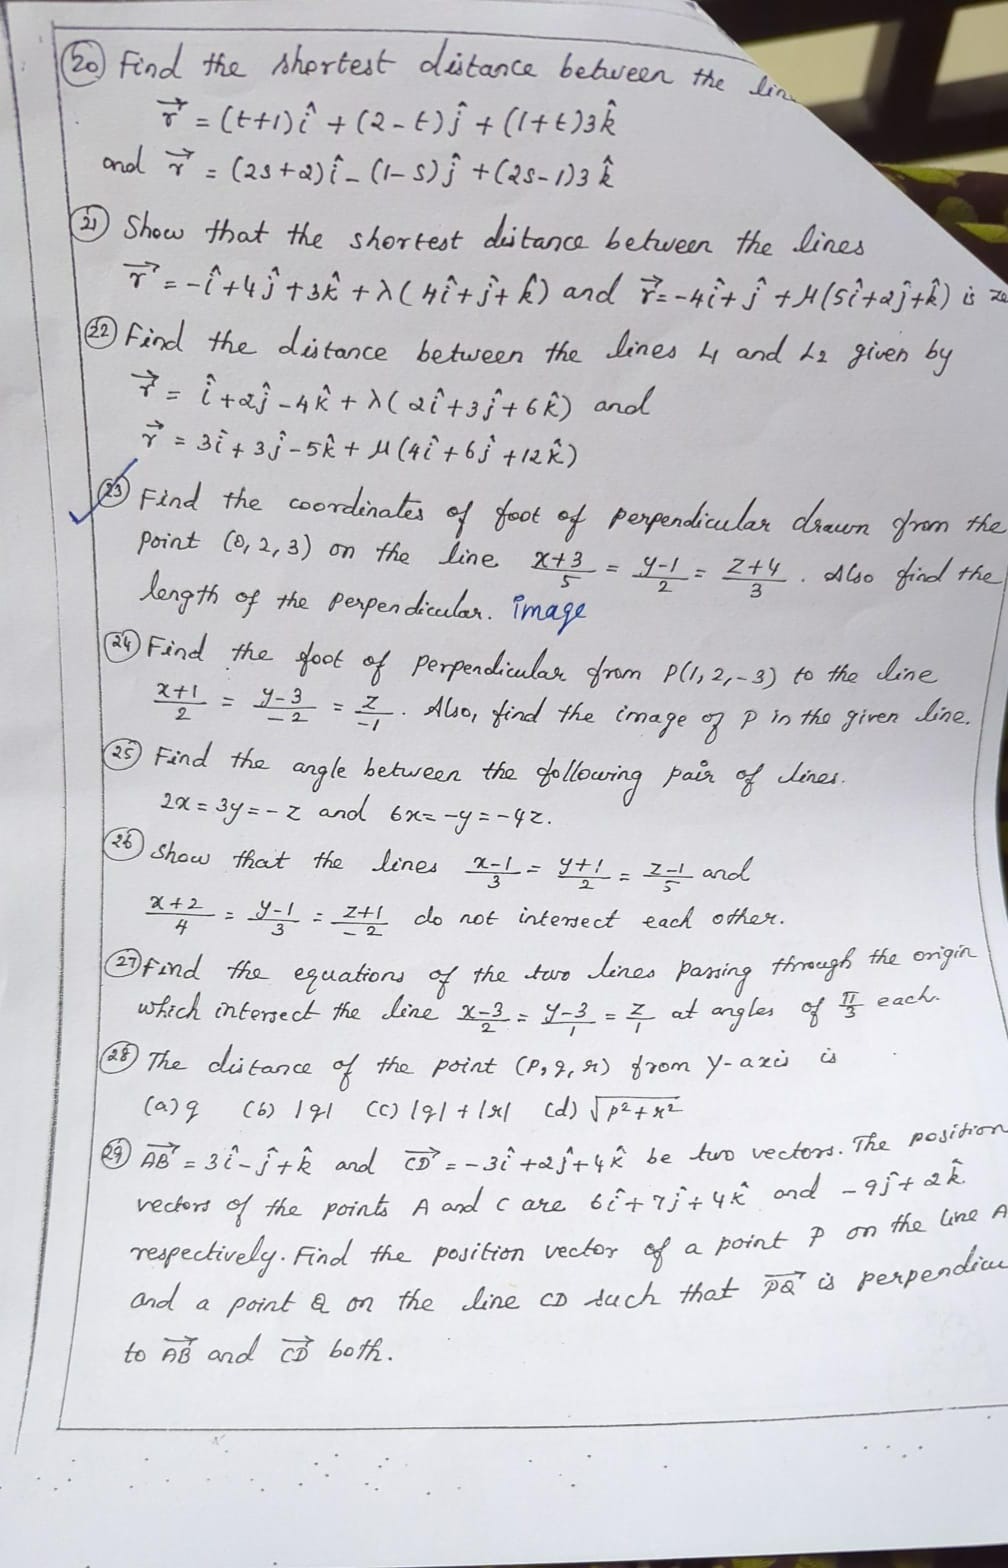 20 Find the shortest distance between the
r⃗ = (t+1)î + (2-t)ĵ + (1+t)3k̂
and r⃗ = (2s+2)î - (1-s)ĵ + (2s-1)3k̂
21 Show that the shortest distance between the lines
r⃗ = -î+4ĵ+3k̂ + λ(4î+ĵ+k̂) and r⃗ = -4î+ĵ+μ(5î+2ĵ+k̂) is
22 Find the distance between the lines L1 and L2 given by
r⃗ = î+2ĵ-4k̂ + λ(2î+3ĵ+6k̂) and
r⃗ = 3î+3ĵ-5k̂ + μ(4î+6ĵ+12k̂)
23 Find the coordinates of foot of perpendicular drawn from the
point (0,2,3) on the line (x+3)/5 = (y-1)/2 = (z+4)/3. Also find the
length of the perpendicular. image
24 Find the foot of perpendicular from P(1,2,-3) to the line
(x+1)/2 = (y-3)/-2 = z/-1. Also, find the image of P in the given line.
25 Find the angle between the following pair of lines.
2x=3y=-z and 6x=-y=-4z.
26 Show that the lines (x-1)/3 = (y+1)/2 = (z-1)/5 and
(x+2)/4 = (y-1)/3 = (z+1)/-2 do not intersect each other.
27 Find the equations of the two lines passing through the origin
which intersect the line (x-3)/2 = (y-3)/1 = z/1 at angles of π/3 each.
28 The distance of the point (p,q,r) from y-axis is
(a) q (b) |q| (c) |q|+|r| (d) √(p²+r²)
29 AB⃗ = 3î-ĵ+k̂ and CD⃗ = -3î+2ĵ+4k̂ be two vectors. The position
vectors of the points A and C are 6î+7ĵ+4k̂ and -9ĵ+2k̂
respectively. Find the position vector of a point P on the line A
and a point Q on the line CD such that PQ⃗ is
to AB⃗ and CD⃗ both.